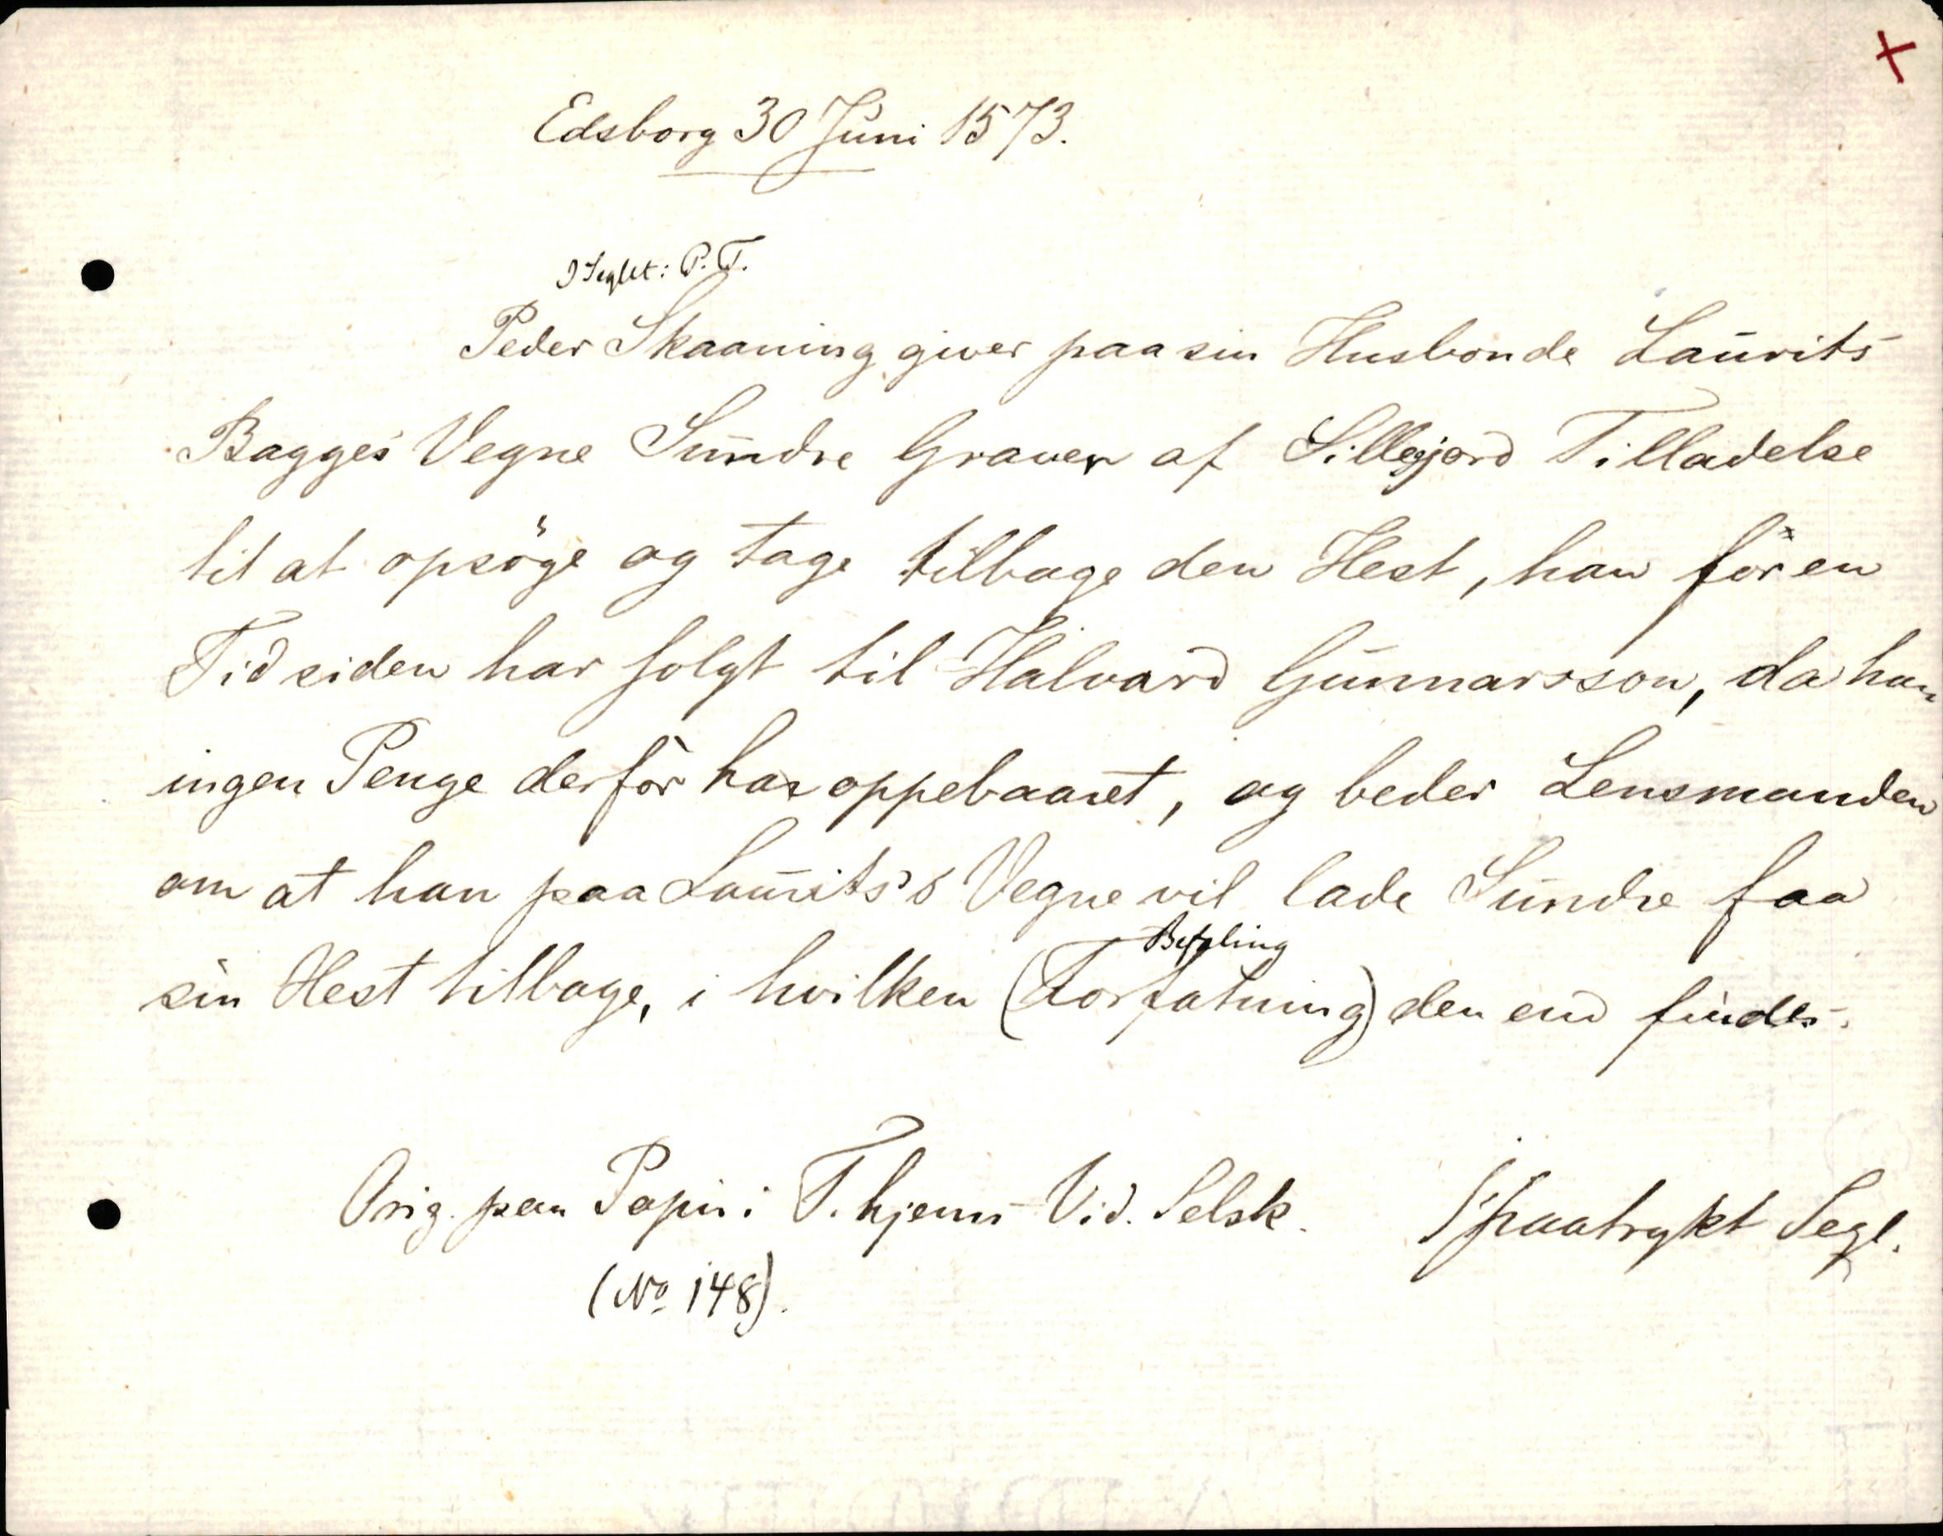 Edsborg 30 Juni 1573.
I Seglet: P. T.
Peder Skaaning giver paa sin Husbonde Laurits
Bagges Vegne Sundre Graver af Sillegjord Tilladelse
til at opsöge og tage tilbage den Hest, han for en
Tid siden har solgt til Halvard Gunnarsson, da han
ingen Penge derfor har oppebaaret, og beder Lensmanden
om at han paa Laurits's Vegne vil lade Sundre faa
Befaling
sin Hest tilbage, i hvilken (Forfatning) den end findes.
Orig. paa Papir i T.hjems Vid. Selsk. 1 paatrykt Segl.
(No 148).